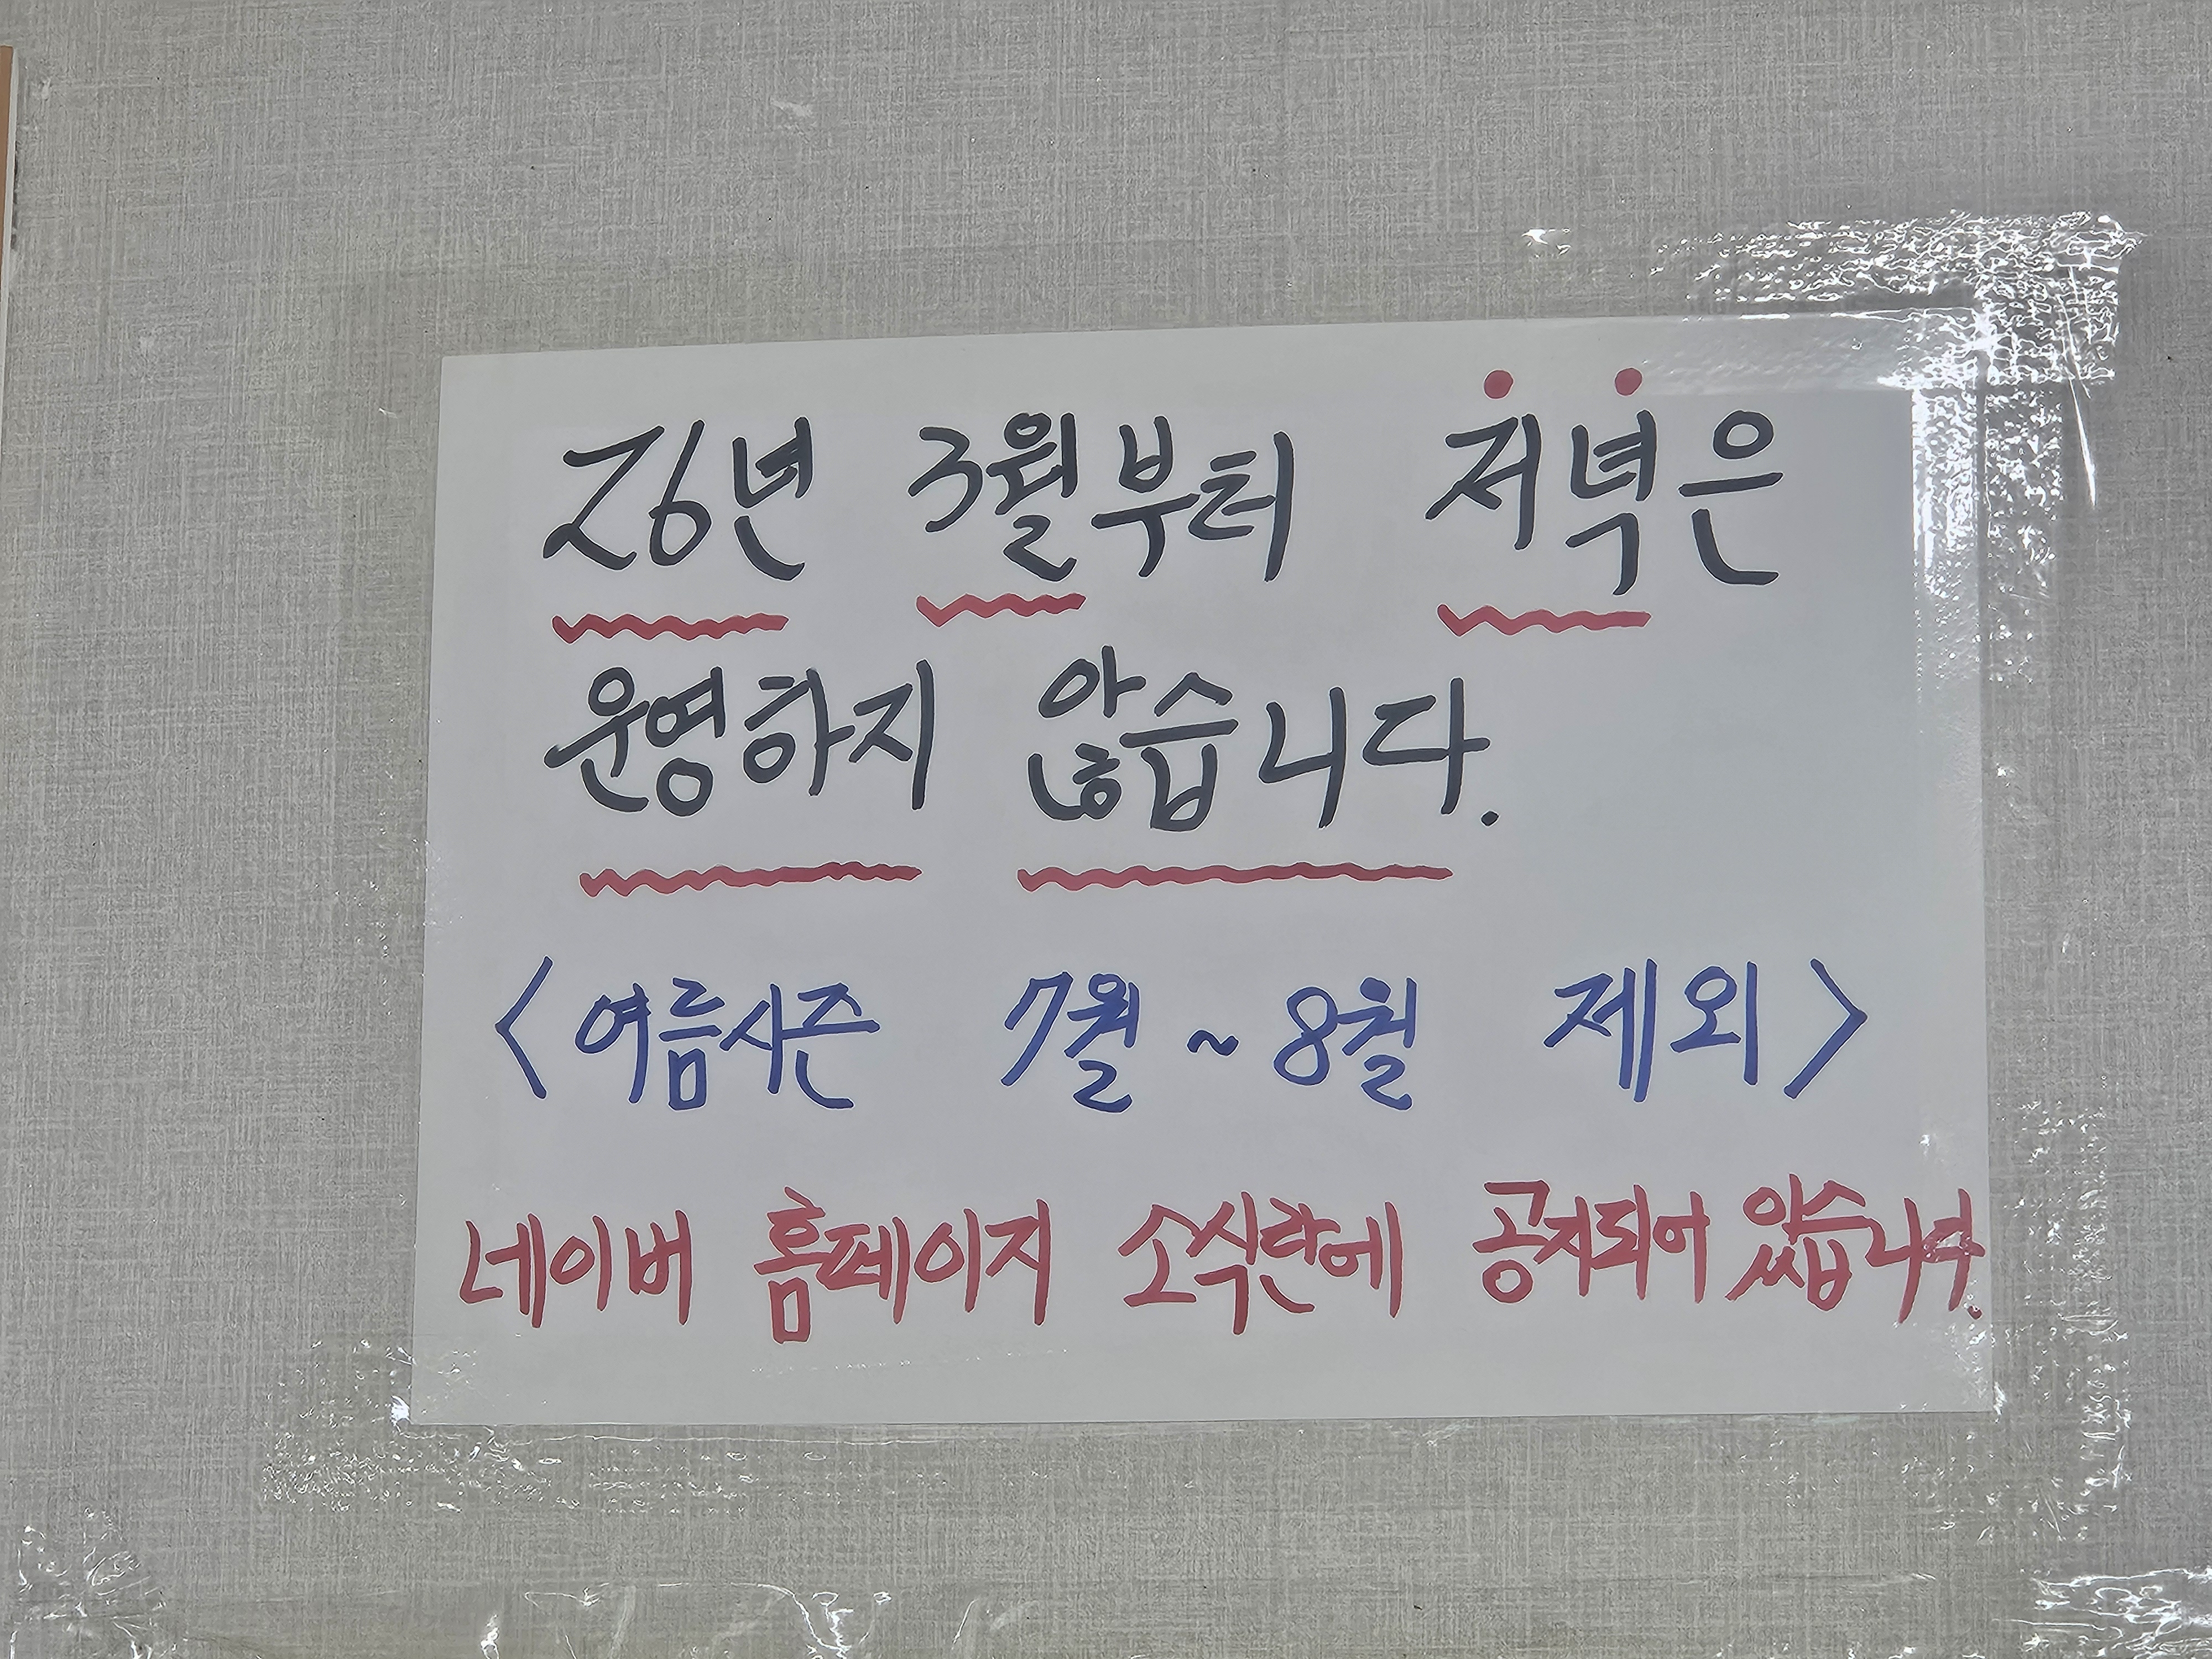 26년 3월부터 저녁은
운영하지 않습니다.
<여름시즌 7월 ~ 8월 제외>
네이버 홈페이지 소식란에 공지되어 있습니다.